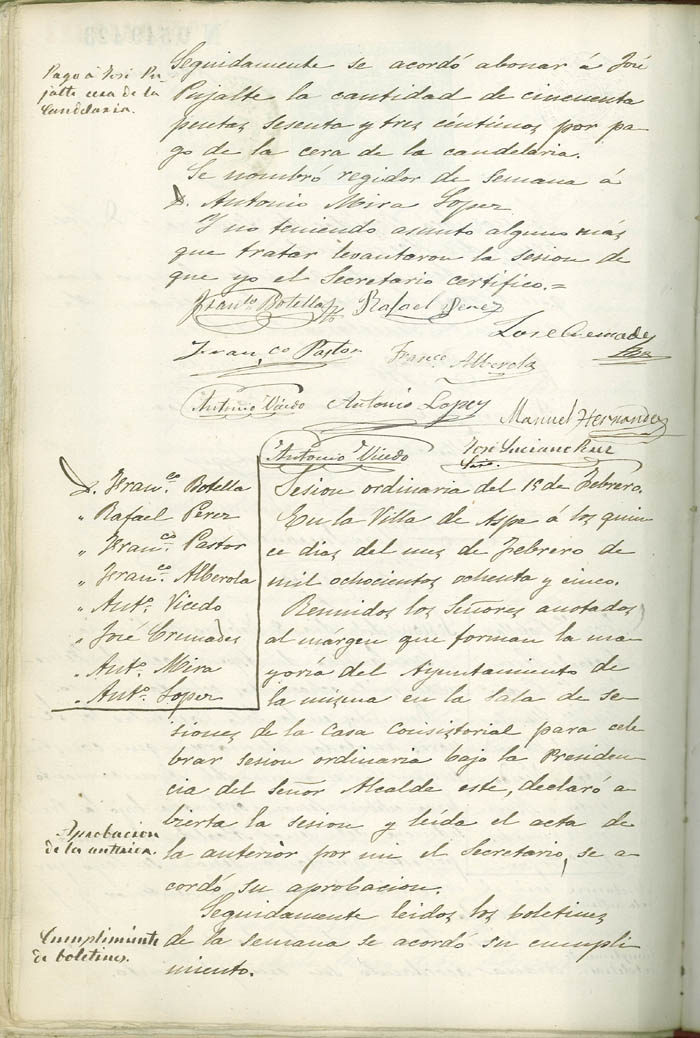 Pago á José Pu-
jalte cera de la
Candelaria.
Seguidamente se acordó abonar á José
Pujalte la cantidad de cincuenta
pesetas sesenta y tres céntimos por pa-
go de la cera de la candelaria.
Se nombró regidor de semana á
D. Antonio Mira Lopez
Y no teniendo asunto alguno mas
que tratar levantaron la sesion de
que yo el Secretario certifico.=
Franco Botella Rafael Perez
José Cremades
Franco Pastor Franco Alberola
Antonio Vicedo Antonio Lopez
Manuel Hernandez
Antonio Vicedo
D. Franco. Botella
" Rafael Pérez
" Franco. Pastor
" Franco. Alberola
" Anto. Vicedo
" José Cremades
" Anto. Mira
" Anto. Lopez
Sesion ordinaria del 15 de Febrero.
En la Villa de Aspe á los quin-
ce dias del mes de Febrero de
mil ochocientos ochenta y cinco.
Reunidos los Señores anotados
al márgen que forman la ma-
yoría del Ayuntamiento de
la misma en la Sala de se-
siones de la Casa Consistorial para cele-
brar sesion ordinaria bajo la Presiden-
cia del Señor Alcalde este, declaró a-
bierta la sesion y leida el acta de
la anterior por mi el Secretario, se a-
cordó su aprobacion.
Aprobacion
de la anterior.
Seguidamente leidos los boletines
de la semana se acordó su cumpli-
miento.
Cumplimiento
de boletines.